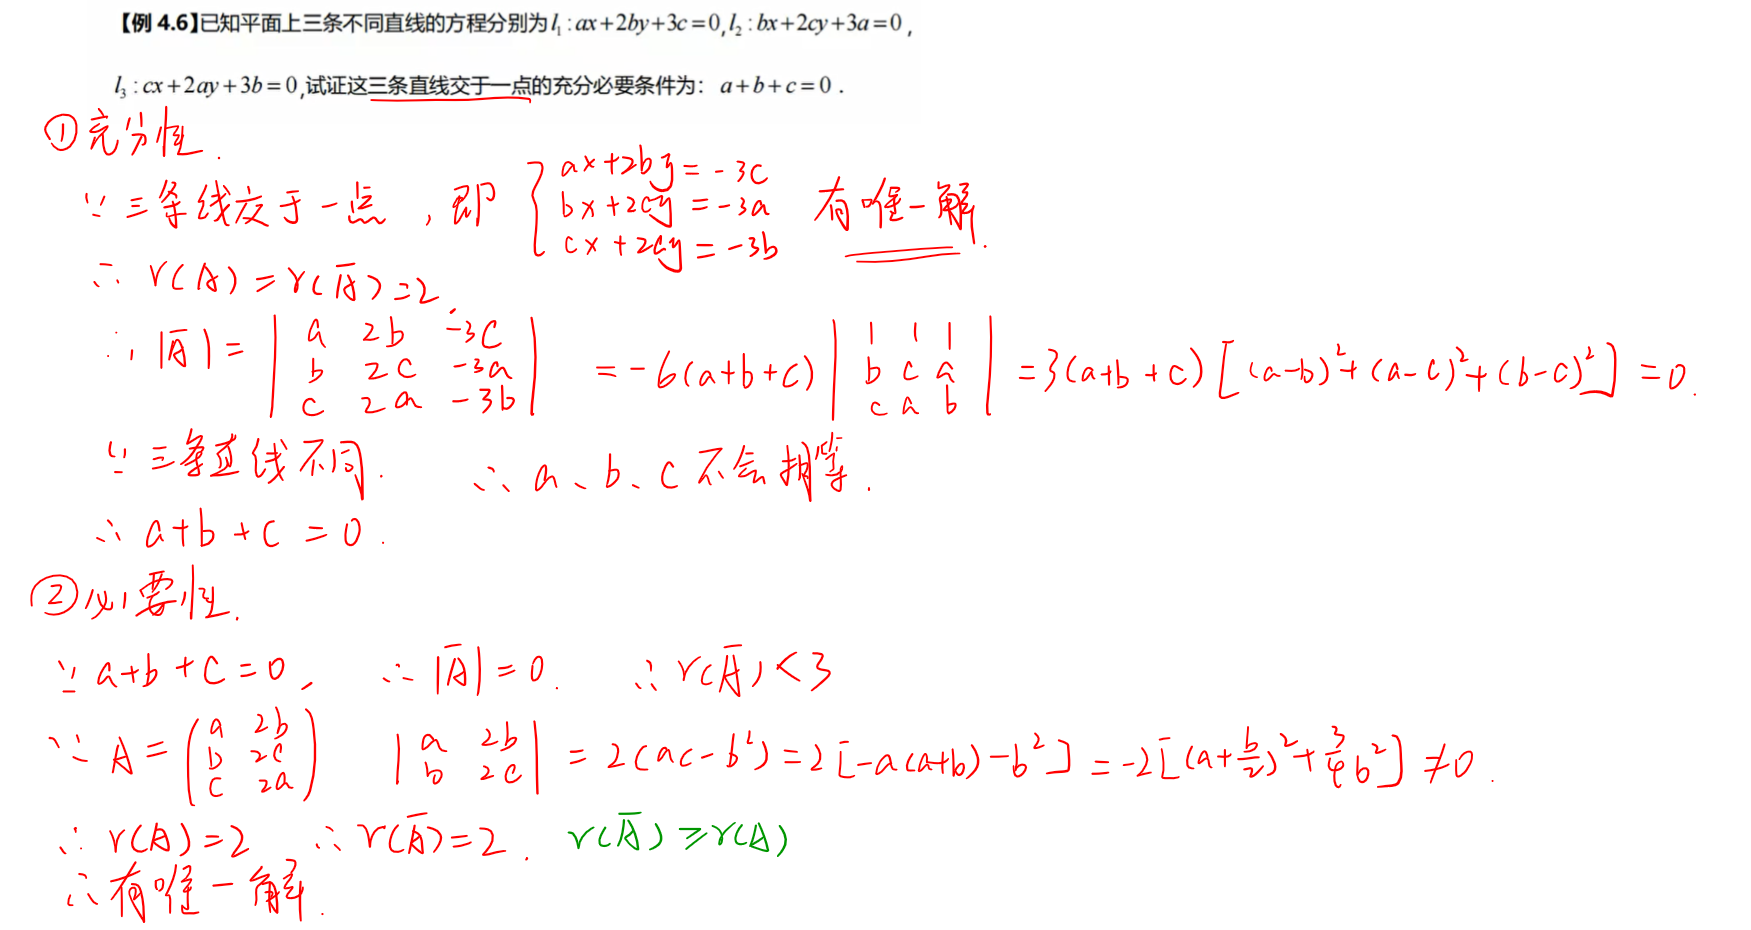 【例 4.6】已知平面上三条不同直线的方程分别为 l₁: ax+2by+3c=0, l₂: bx+2cy+3a=0,
l₃: cx+2ay+3b=0,试证这三条直线交于一点的充分必要条件为: a+b+c=0.
①充分性.
∵三条线交于一点,即 { ax+2by=-3c
bx+2cy=-3a 有唯一解.
cx+2ay=-3b
∴ r(A)=r(Ā)=2.
∴ |Ā| = | a 2b -3c ; b 2c -3a ; c 2a -3b | = -6(a+b+c) | 1 1 1 ; b c a ; c a b | = 3(a+b+c)[(a-b)²+(a-c)²+(b-c)²] = 0.
∵三条直线不同. ∴ a、b、c 不会相等.
∴ a+b+c=0.
②必要性.
∵ a+b+c=0, ∴ |Ā|=0. ∴ r(Ā)<3
∵ A = ( a 2b ; b 2c ; c 2a ) | a 2b ; b 2c | = 2(ac-b²) = 2[-a(a+b)-b²] = -2[(a+b/2)²+3/4b²] ≠ 0.
∴ r(A)=2 ∴ r(Ā)=2. r(Ā)≥r(A)
∴有唯一解.